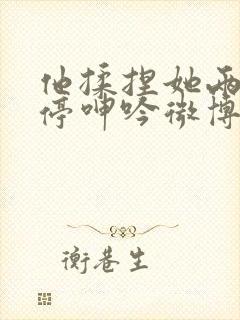 他揉捏她两
停呻吟微博
衡巷生